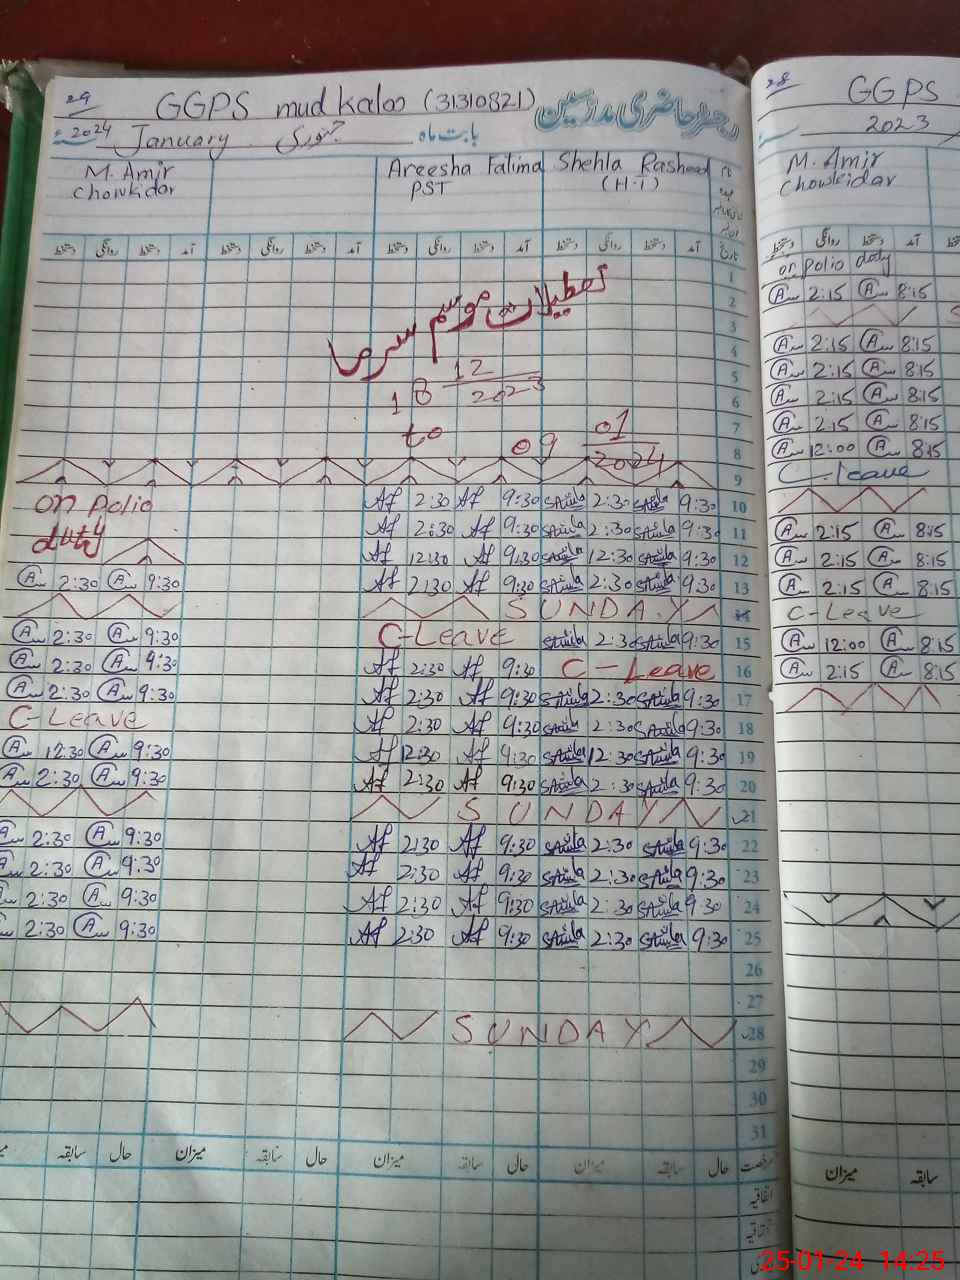 29
GGPS mud kaloo (31310821) رجسٹر حاضری مدرسین
2024 January جنوری بابت ماہ
M. Amir Areesha Fatima Shehla Rasheed نام
Chowkidar PST (H.T) عہدہ
دستخط روانگی دستخط آمد دستخط روانگی دستخط آمد دستخط روانگی دستخط آمد دستخط روانگی دستخط آمد تاریخ
1
تعطیلات موسم سرما 2
3
4
18 12 2023 5
6
to 7
09 01 2024 8
9
on Polio 2:30 9:30 2:30 9:30 10
duty 2:30 9:30 2:30 9:30 11
12:30 9:30 12:30 9:30 12
2:30 9:30 2:30 9:30 2:30 9:30 13
SUNDAY 14
2:30 9:30 C-Leave 2:30 9:30 15
2:30 9:30 2:30 9:30 C-Leave 16
2:30 9:30 2:30 9:30 2:30 9:30 17
C-Leave 2:30 9:30 2:30 9:30 18
12:30 9:30 12:30 9:30 12:30 9:30 19
2:30 9:30 2:30 9:30 2:30 9:30 20
SUNDAY 21
2:30 9:30 2:30 9:30 2:30 9:30 22
2:30 9:30 2:30 9:30 2:30 9:30 23
2:30 9:30 2:30 9:30 2:30 9:30 24
2:30 9:30 2:30 9:30 2:30 9:30 25
26
27
SUNDAY 28
29
30
31
سابقہ حال میزان سابقہ حال میزان سابقہ حال میزان سابقہ حال
اتفاقیہ
28
GGPS
2023
M. Amir
Chowkidar
دستخط روانگی دستخط آمد
on Polio duty
2:15 8:15
2:15 8:15
2:15 8:15
2:15 8:15
2:15 8:15
12:00 8:15
C-leave
2:15 8:15
2:15 8:15
2:15 8:15
C-Leave
12:00 8:15
2:15 8:15
میزان سابقہ
25-01-24 14:25